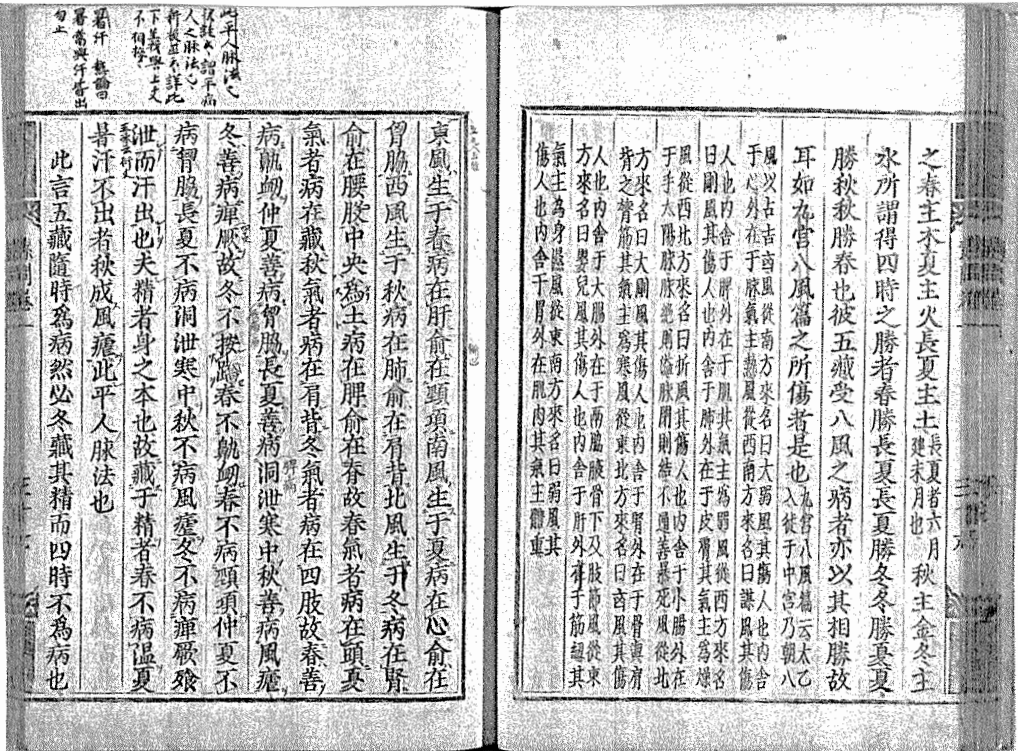 之春主木夏主火長夏主土長夏者六月建未月也秋主金冬主
水所謂得四時之勝者春勝長夏長夏勝冬冬勝夏夏
勝秋秋勝春也彼五藏受八風之病者亦以其相勝故
耳如九宮八風篇之所傷者是也九宮八風篇云太乙入徙于中宮乃朝八
風以占吉凶風從南方來名曰大弱風其傷人也內舍
于心外在于脉氣主熱風從西南方來名曰謀風其傷
人也內舍于脾外在于肌其氣主為弱風從西方來名
曰剛風其傷人也內舍于肺外在于皮膚其氣主為燥
風從西北方來名曰折風其傷人也內舍于小腸外在
于手太陽脉脉絕則溢脉閉則結不通善暴死風從北
方來名曰大剛風其傷人也內舍于腎外在于骨與肩
背之膂筋其氣主為寒風從東北方來名曰凶風其傷
人也內舍于大腸外在于兩脇腋骨下及肢節風從東
方來名曰嬰兒風其傷人也內舍于肝外在于筋紐其
氣主為身濕風從東南方來名曰弱風其
傷人也內舍于胃外在肌肉其氣主體重
此平人脉法也
下義與上文
不相接
暑汗
暑當與汗皆出
勿止
東風生于春病在肝俞在頸項南風生于夏病在心俞在
胷脇西風生于秋病在肺俞在肩背北風生于冬病在腎
俞在腰股中央為土病在脾俞在脊故春氣者病在頭夏
氣者病在藏秋氣者病在肩背冬氣者病在四肢故春善
病鼽衂仲夏善病胷脇長夏善病洞泄寒中秋善病風瘧
冬善病痺厥故冬不按蹻春不鼽衂春不病頸項仲夏不
病胷脇長夏不病洞泄寒中秋不病風瘧冬不病痺厥飧
泄而汗出也夫精者身之本也故藏于精者春不病温夏
暑汗不出者秋成風瘧此平人脉法也
此言五藏隨時為病然必冬藏其精而四時不為病也